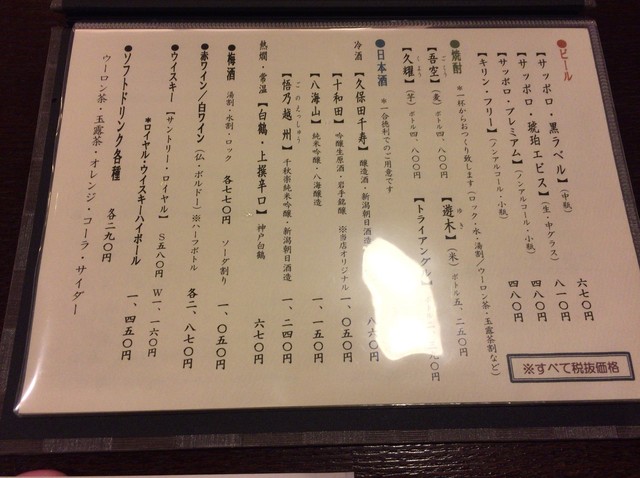 ●ビール
【サッポロ・黒ラベル】(中瓶) 六七〇円
【サッポロ・琥珀ヱビス】(生・中グラス) 八一〇円
【サッポロ・プレミアム】(ノンアルコール・小瓶) 四八〇円
【キリン・フリー】(ノンアルコール・小瓶) 四八〇円
●焼酎 *一杯からおつくり致します(ロック・水・湯割/ウーロン茶・玉露茶割など)
【吾空】(麦) ボトル四、八〇〇円 【遊木】(米) ボトル五、二五〇円
【久耀】(芋) ボトル四、八〇〇円 【トライアングル】
●日本酒 *一合徳利でのご用意です
冷酒 【久保田千寿】 醸造酒・新潟朝日酒造
【十和田】 吟醸生原酒・岩手銘醸 ※当店オリジナル 一、〇五〇円
【八海山】 純米吟醸・八海醸造 一、一五〇円
【悟乃越州】 千秋楽純米吟醸・新潟朝日酒造 一、二四〇円
熱燗・常温 【白鶴・上撰辛口】 神戸白鶴 六七〇円
●梅酒 湯割・水割・ロック 各七七〇円 ソーダ割り 一、〇五〇円
●赤ワイン/白ワイン (仏・ボルドー) ※ハーフボトル 各二、八七〇円
●ウイスキー 【サントリー・ロイヤル】 S五八〇円 W一、一六〇円
*ロイヤル・ウイスキーハイボール 一、四五〇円
●ソフトドリンク各種 各二九〇円
ウーロン茶・玉露茶・オレンジ・コーラ・サイダー
※すべて税抜価格